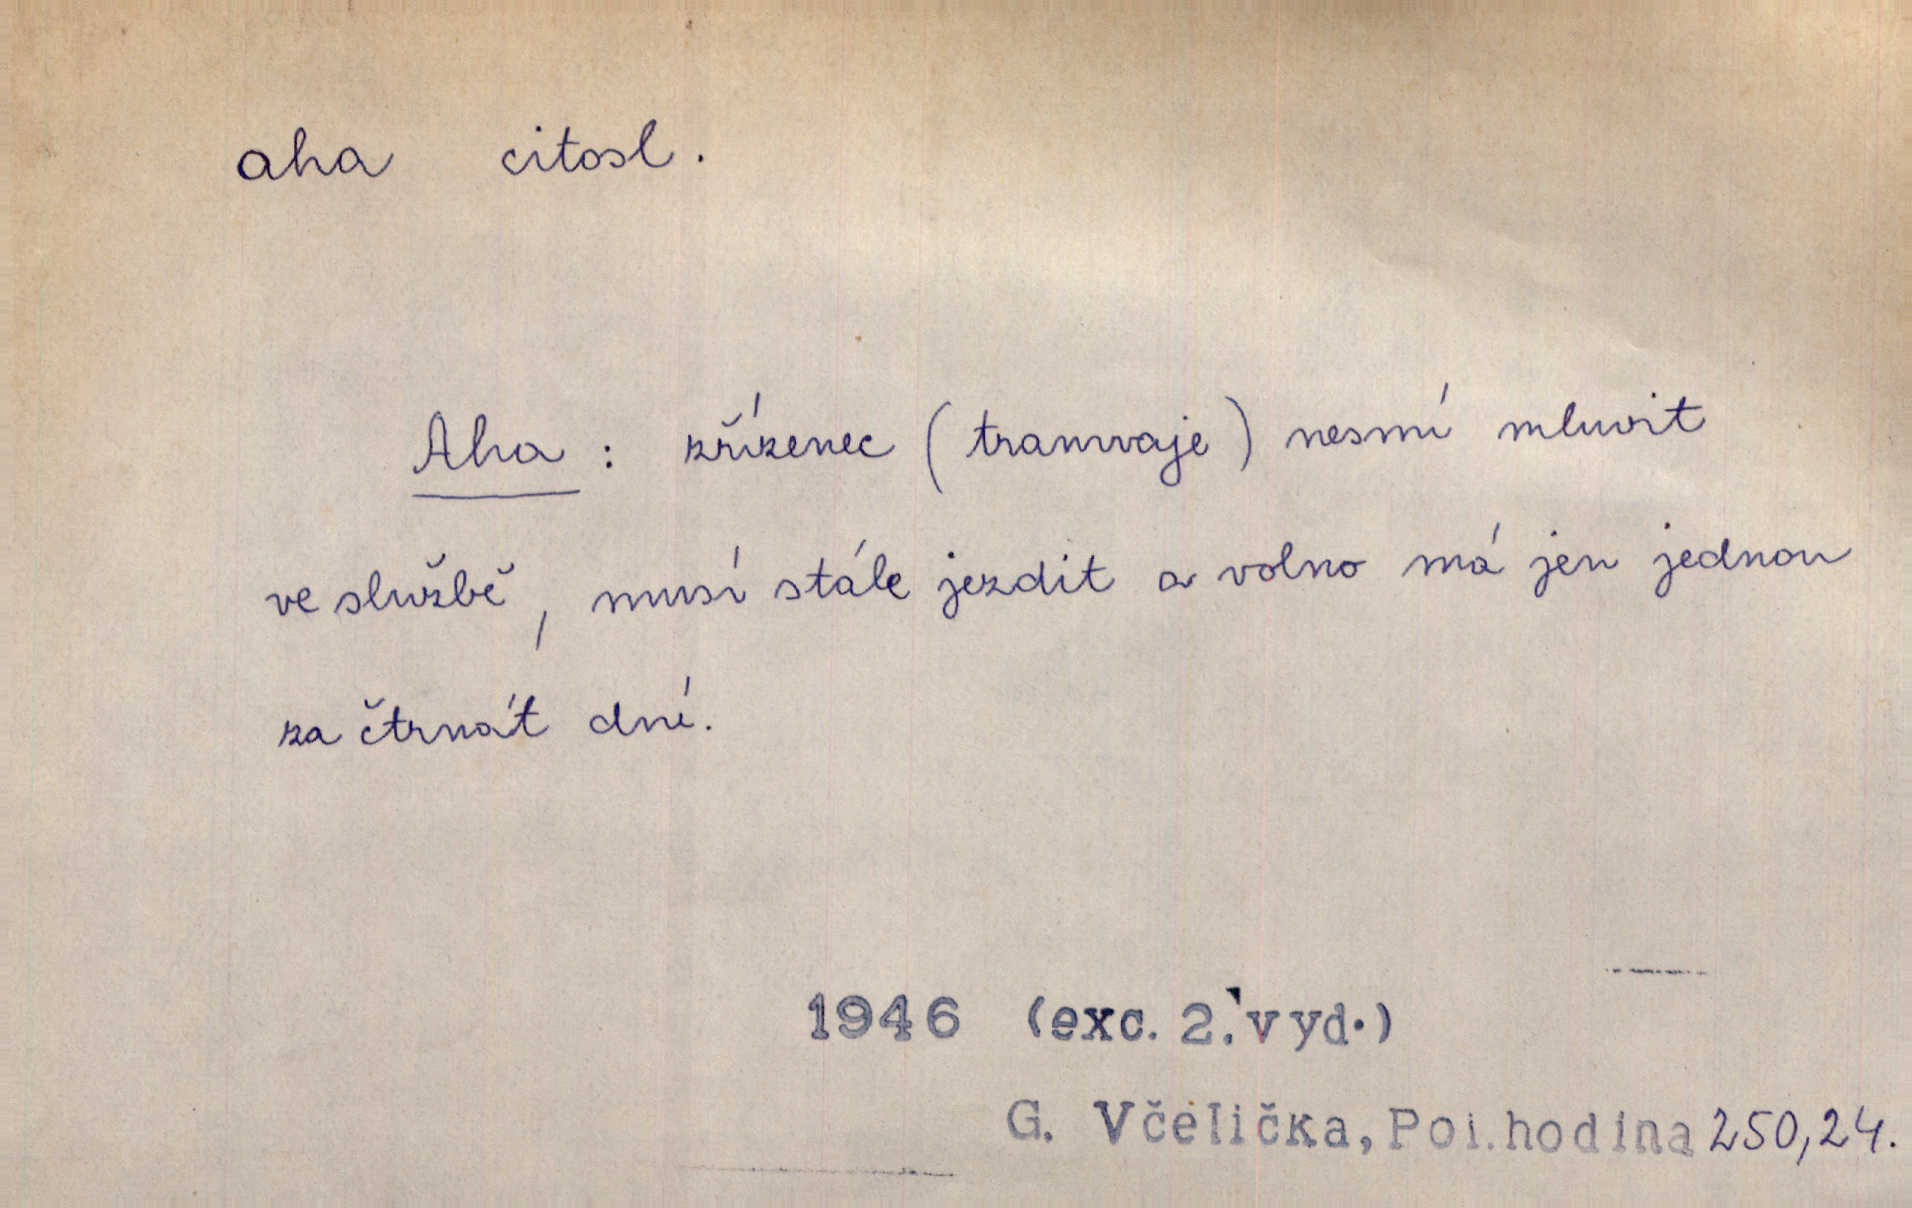 aha citosl.
Aha : zřízenec (tramvaje) nesmí mluvit
ve službě, musí stále jezdit a volno má jen jednou
za čtrnáct dní.
1946 (exc. 2. vyd.)
G. Včelička, Pol. hodina 250,24.